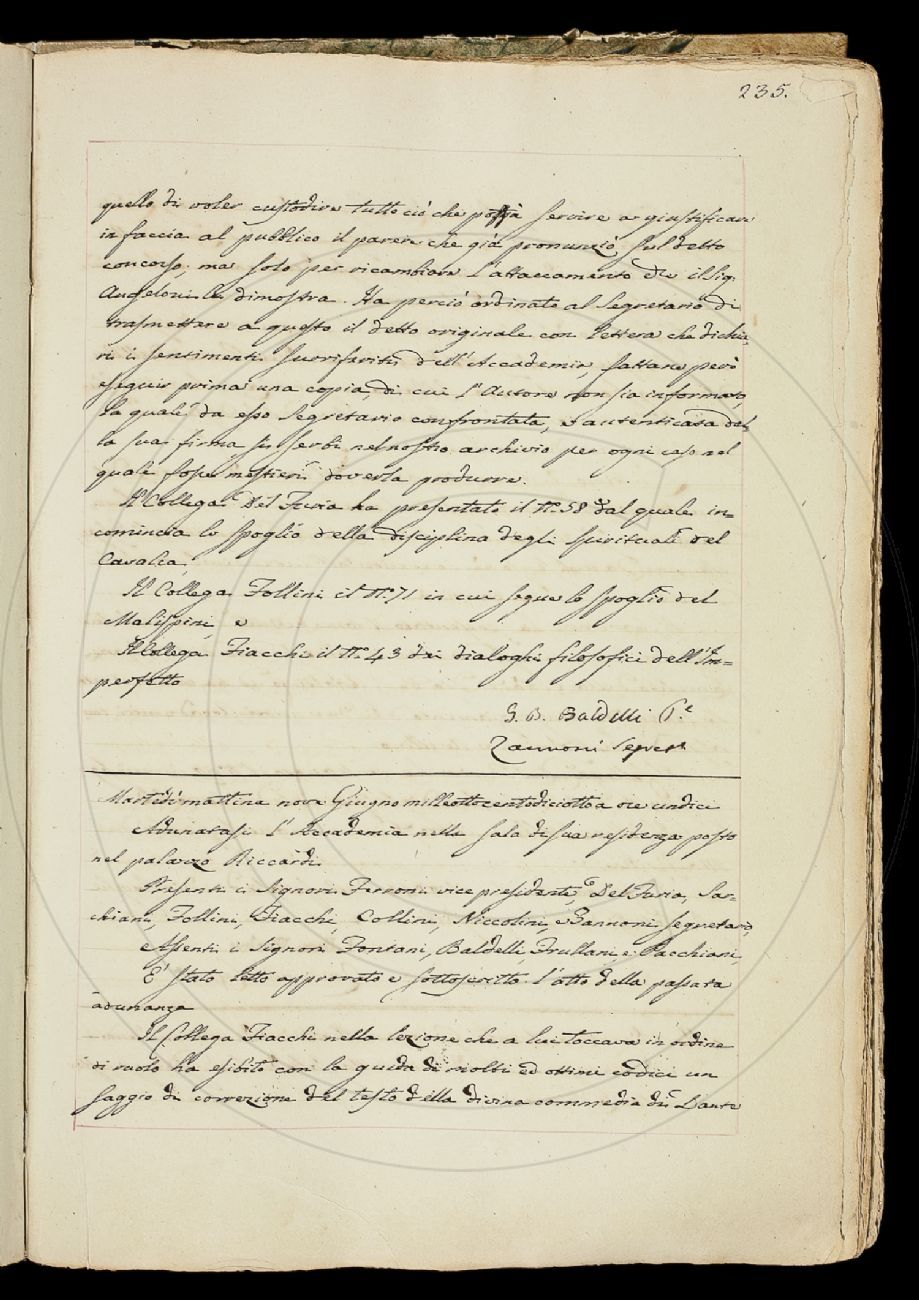 235.
quello di voler custodire tutto ciò che possa servire a giustificare
in faccia al pubblico il parere che già pronunziò sul detto
concorso; ma solo per ricambiare l'attaccamento che il Sig.
Angeloni le dimostra. Ha perciò ordinato al Segretario di
trasmettere a questo il detto originale con lettera che dichia,
ri i sentimenti surriferiti dell'Accademia, fattane però
eseguir prima una copia, di cui l'Autore non sia informato,
la quale da esso Segretario confrontata, e autenticata del,
la sua firma si serbi nel nostro archivio per ogni caso nel
quale fosse mestieri doverla produrre.
Il Collega Del Furia ha presentato il N.º 58 dal quale in=
comincia lo spoglio della disciplina degli spirituali del
Cavalca,
Il Collega Follini il N.º 71 in cui segue lo spoglio del
Malispini, e
Il Collega Fiacchi il N.º 43 dei dialoghi filosofici dell'Im=
perfetto
G. B. Baldelli P.e
Zannoni Segret.º
Martedì mattina nove Giugno milleottocentodiciotto a ore undici
Adunatasi l'Accademia nella sala di sua residenza posta
nel palazzo Riccardi.
Presenti i Signori Ferroni vice presidente, Del Furia, Sar=
chiani, Follini, Fiacchi, Collini, Niccolini, e Zannoni segretario,
Assenti i Signori Fontani, Baldelli, Frullani, e Pacchiani,
E' stato letto approvato e sottoscritto l'atto della passata
adunanza
Il Collega Fiacchi nella lezione che a lui toccava in ordine
di ruolo ha esibito con la guida di molti ed ottimi codici un
saggio di correzione del testo della divina commedia di Dante